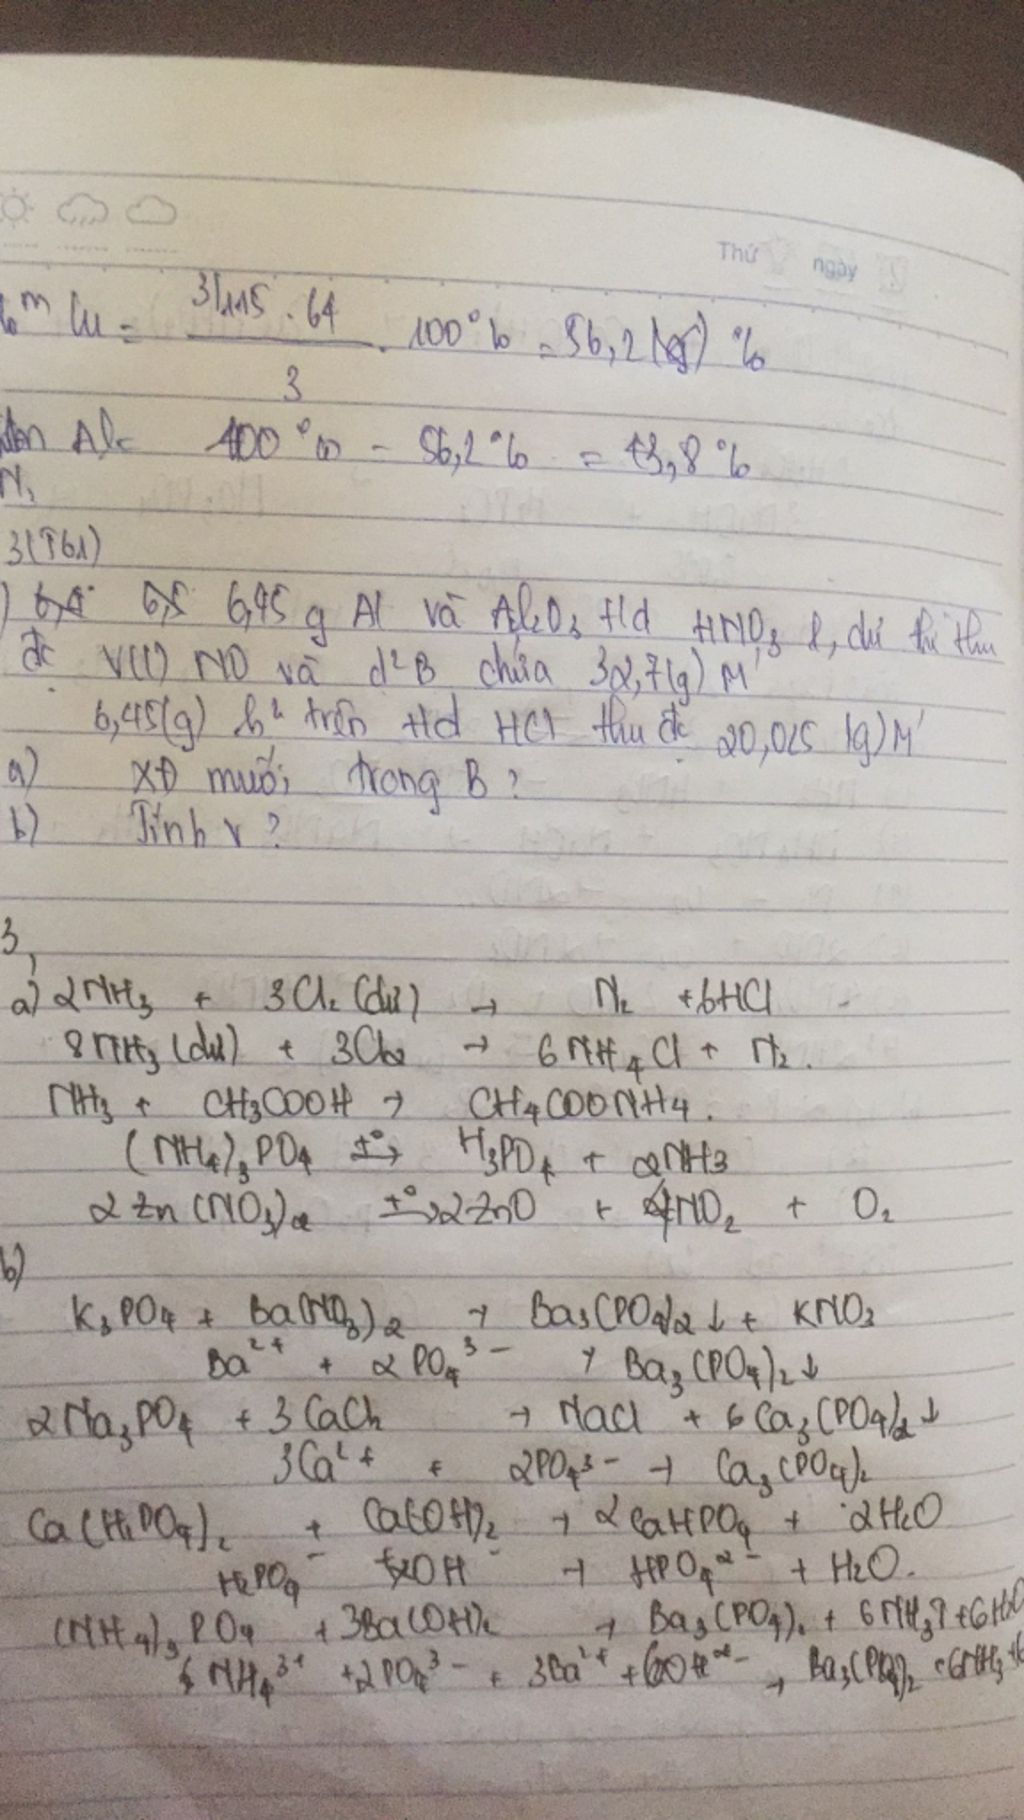 Thứ ngày
%m Cu = 3/115 . 64 / 3 . 100% = 56,2 %
100% - 56,2% = 43,8%
3(T61)
6,45 g Al và Al2O3 t/d HNO3 l, dư thì thu
đc V(l) NO và d² B chứa 32,7(g) M'
6,45(g) h² trên t/d HCl thu đc 20,025 (g) M'
a) XĐ muối trong B ?
b) Tính V ?
3,
a) 2NH3 + 3Cl2 (dư) → N2 + 6HCl
8NH3 (dư) + 3Cl2 → 6NH4Cl + N2.
NH3 + CH3COOH → CH4COONH4.
(NH4)3PO4 t°→ H3PO4 + 2NH3
2Zn(NO3)2 t°→ 2ZnO + 4NO2 + O2
b)
K3PO4 + Ba(NO3)2 → Ba3(PO4)2↓ + KNO3
Ba²⁺ + 2PO4³⁻ → Ba3(PO4)2↓
2Na3PO4 + 3CaCl2 → NaCl + 6Ca3(PO4)2↓
3Ca²⁺ + 2PO4³⁻ → Ca3(PO4)2
Ca(H2PO4)2 + Ca(OH)2 → 2CaHPO4 + 2H2O
H2PO4⁻ + OH⁻ → HPO4²⁻ + H2O.
(NH4)3PO4 + 3Ba(OH)2 → Ba3(PO4)2 + 6NH3↑ + 6H2O
6NH4³⁺ + 2PO4³⁻ + 3Ba²⁺ + 6OH²⁻ → Ba3(PO4)2 + 6NH3 + 6